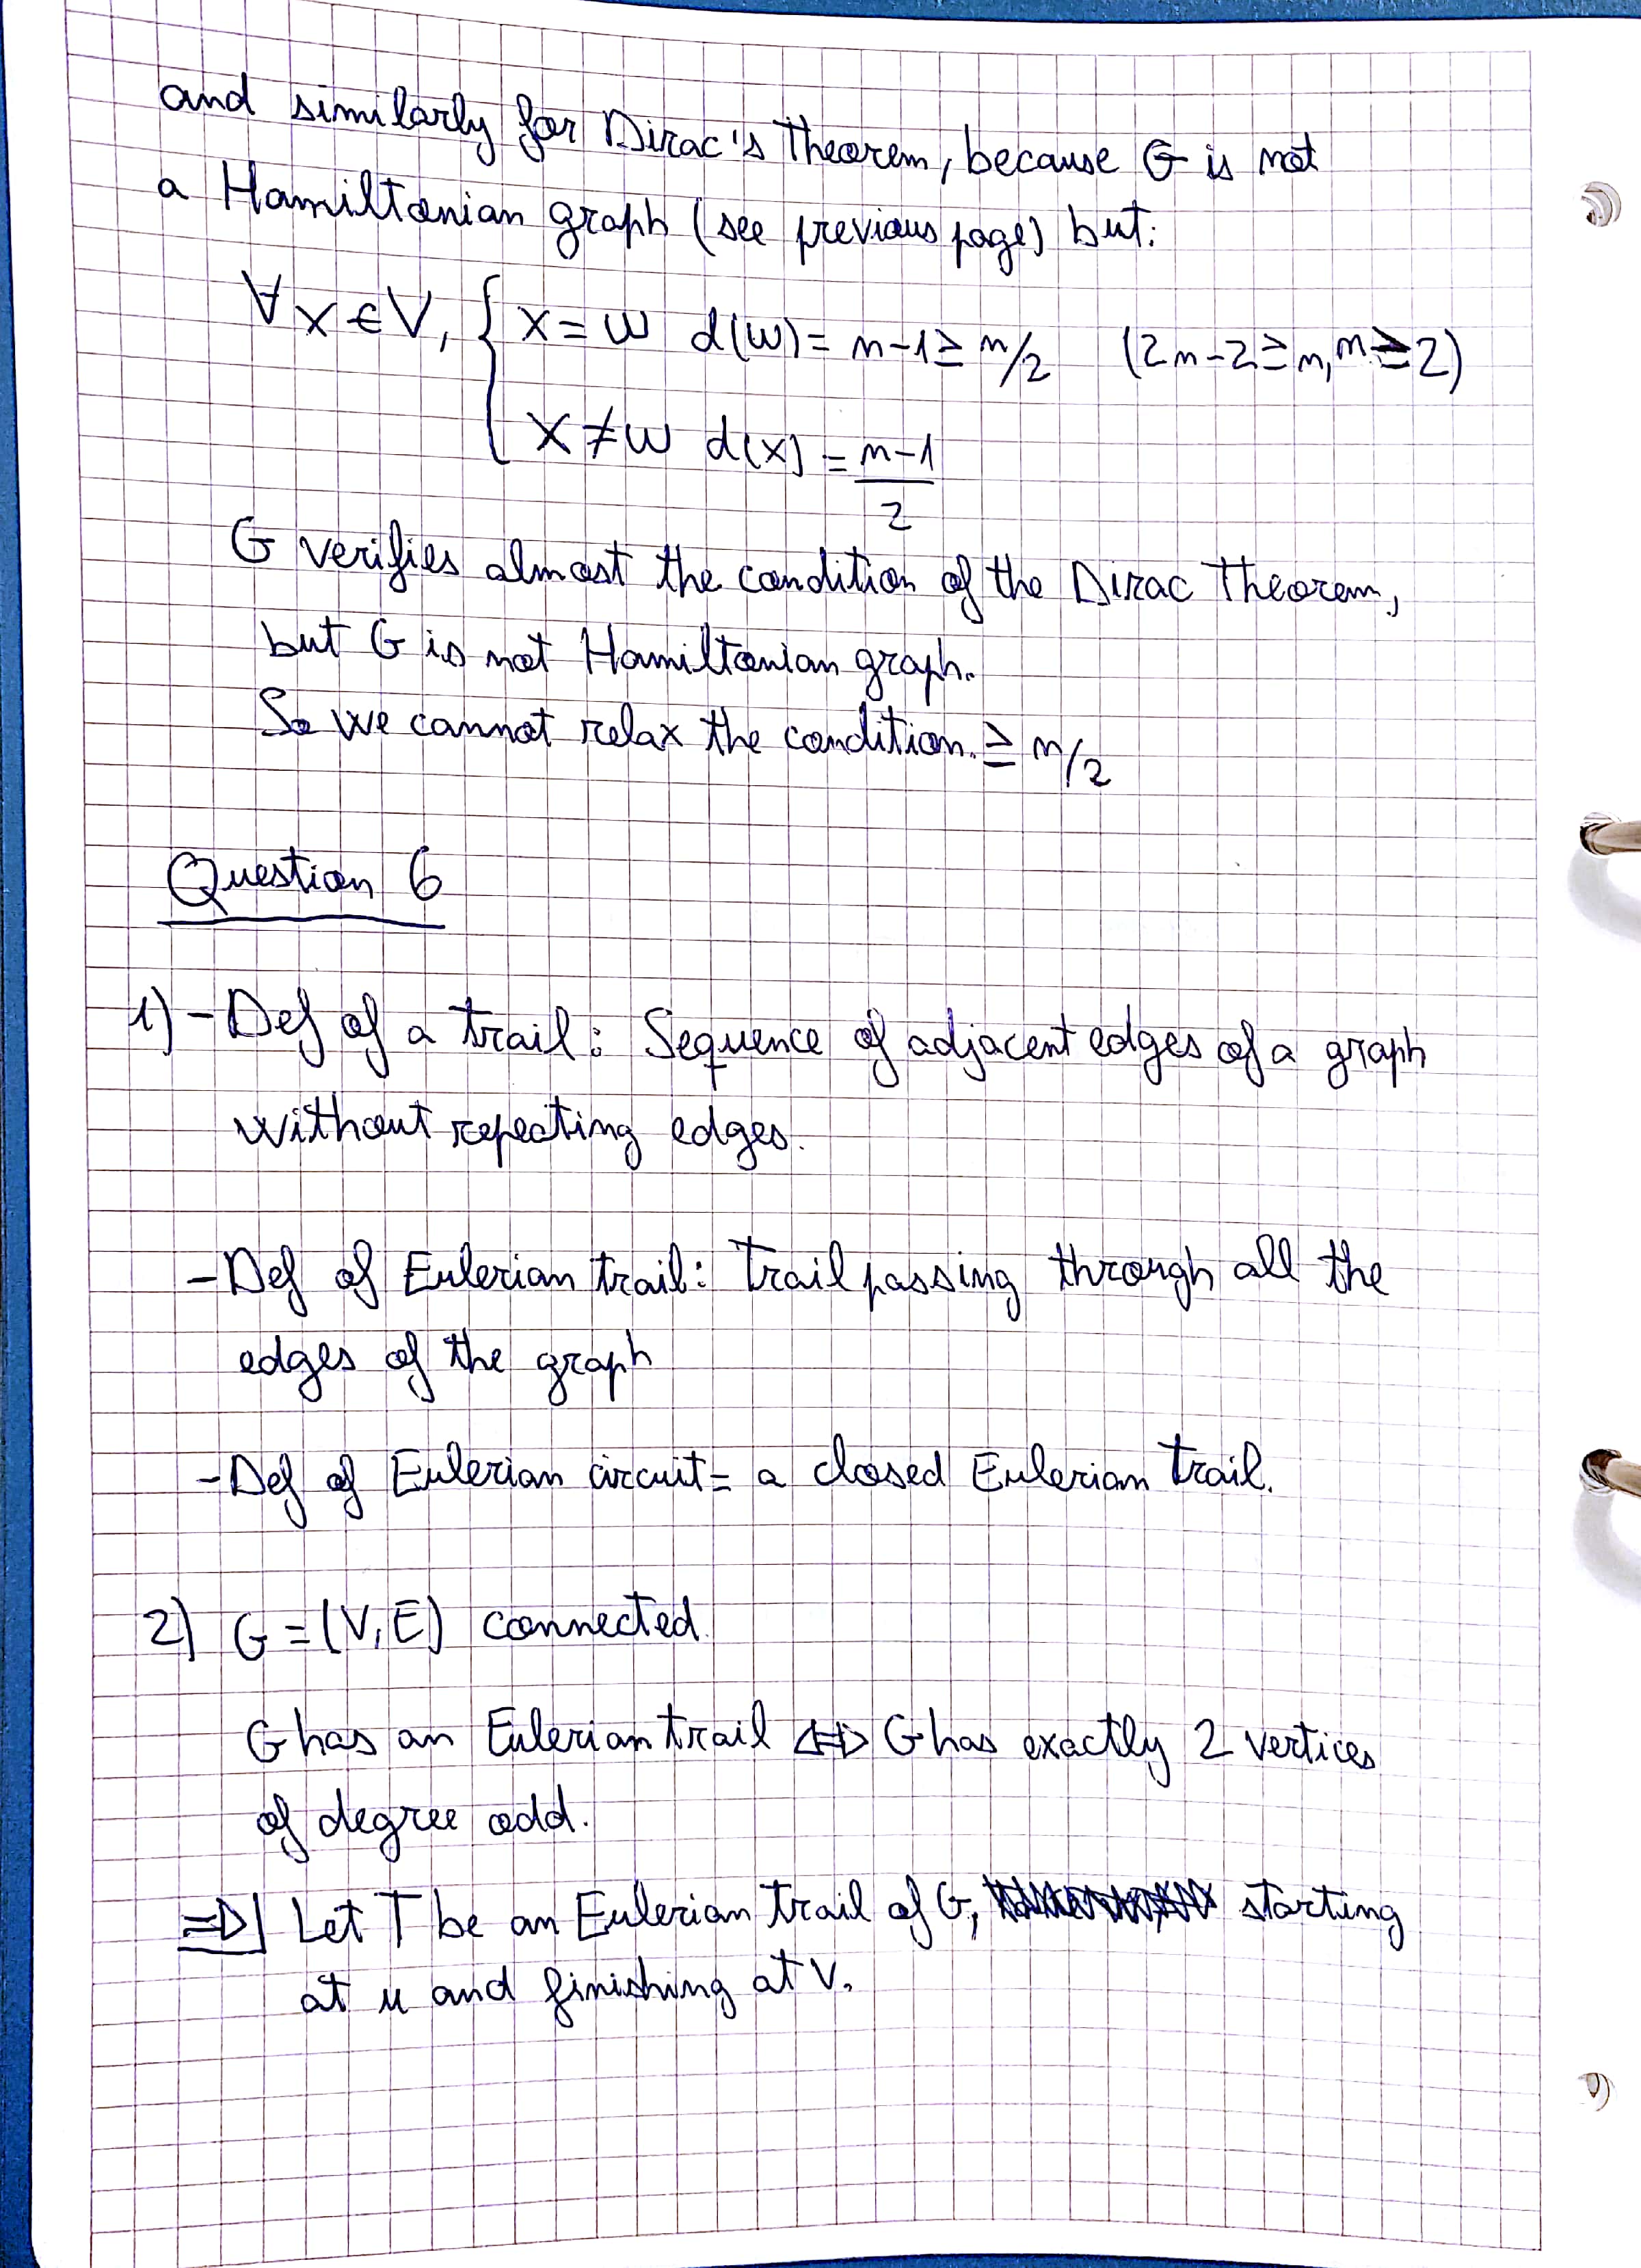 and similarly for Dirac's Theorem, because G is not
a Hamiltonian graph (see previous page) but:
∀x∈V, { x = w d(w) = n-1 ≥ n/2 (2n-2 ≥ n, n ≥ 2)
x ≠ w d(x) = n-1/2
G verifies almost the condition of the Dirac Theorem,
but G is not Hamiltonian graph.
So we cannot relax the condition. ≥ n/2
Question 6
1) - Def of a trail: Sequence of adjacent edges of a graph
without repeating edges.
- Def of Eulerian trail: Trail passing through all the
edges of the graph
- Def of Eulerian circuit = a closed Eulerian trail.
2) G = (V, E) connected.
G has an Eulerian trail ⇔ G has exactly 2 vertices
of degree odd.
⇒| Let T be an Eulerian trail of G, starting
at u and finishing at v.